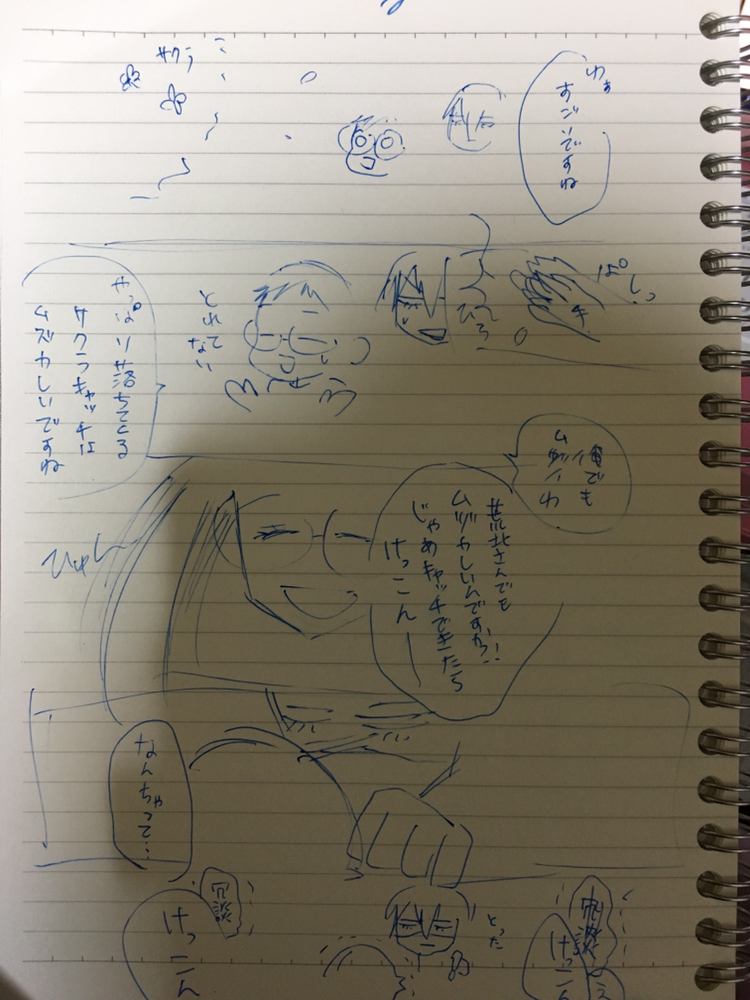 わぁ
すごいですね
サクラ
ぱしっ
とれて
ない
やっぱり落ちてくる
サクラキャッチは
ムズかしいですね
俺でも
ムズイわ
荒北さんでも
ムズかしいんですか!
じゃあキャッチできたら
けっこん
ひゅん
なんちゃって…
冗談
けっこん
とった
冗談
けっこん